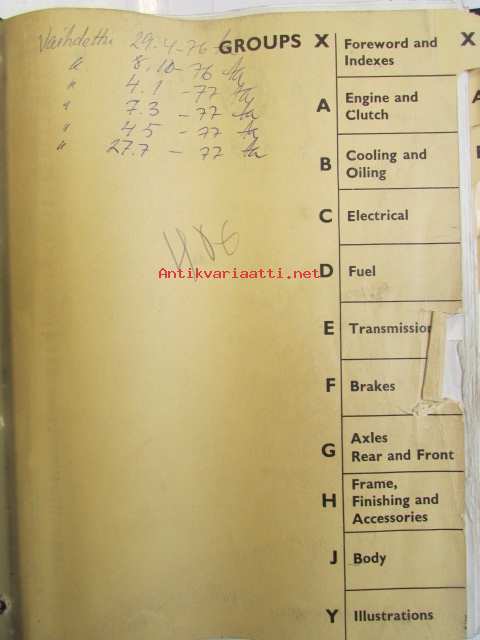 Vaihdettu 29.4-76 ta
" 8.10-76 ta
" 4.1 -77 ta
" 7.3 -77 ta
" 4.5 -77 ta
" 27.7 - 77 ta
GROUPS
X Foreword and
Indexes
A Engine and
Clutch
B Cooling and
Oiling
C Electrical
D Fuel
E Transmission
F Brakes
G Axles
Rear and Front
H Frame,
Finishing and
Accessories
J Body
Y Illustrations
X
Antikvariaatti.net